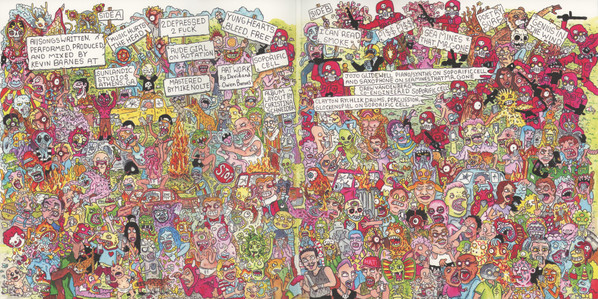 SIDE A
ALL SONGS WRITTEN,
PERFORMED, PRODUCED,
AND MIXED BY
KEVIN BARNES AT
SUNLANDIC
STUDIOS
ATHENS, GA
MUSIC HURTS
THE HEAD
2 DEPRESSED
2 FUCK
RUDE GIRL
ON ROTATION
YUNG HEARTS
BLEED FREE
SOPORIFIC
CELL
MASTERED
BY MIKE NOLTE
ARTWORK
by David and
SIDE B
I CAN READ
SMOKE
SEA MINES
THAT MR GONE
POETS
GENIUS IN
THE WIND
JOJO GLIDEWELL PIANO/SYNTHS ON SOPORIFIC CELL
AND SAXOFONE ON SEA MINES THAT MR GONE
DREW VANDENBERG
ENGINEERED SOPORIFIC CELL
CLAYTON RYCHLIK DRUMS, PERCUSSION,
GLOCKENSPIEL ON SOPORIFIC CELL
STOP